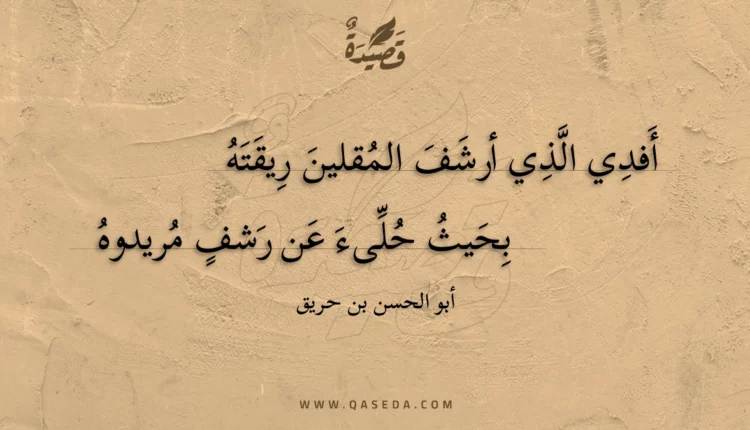 قَصِيْدَةٌ
أَفدِي الَّذِي أرشَفَ المُقلينَ رِيقَتَهُ
بِحَيثُ حُلِّىءَ عَن رَشفٍ مُريدوهُ
أبو الحسن بن حريق
WWW.QASEDA.COM